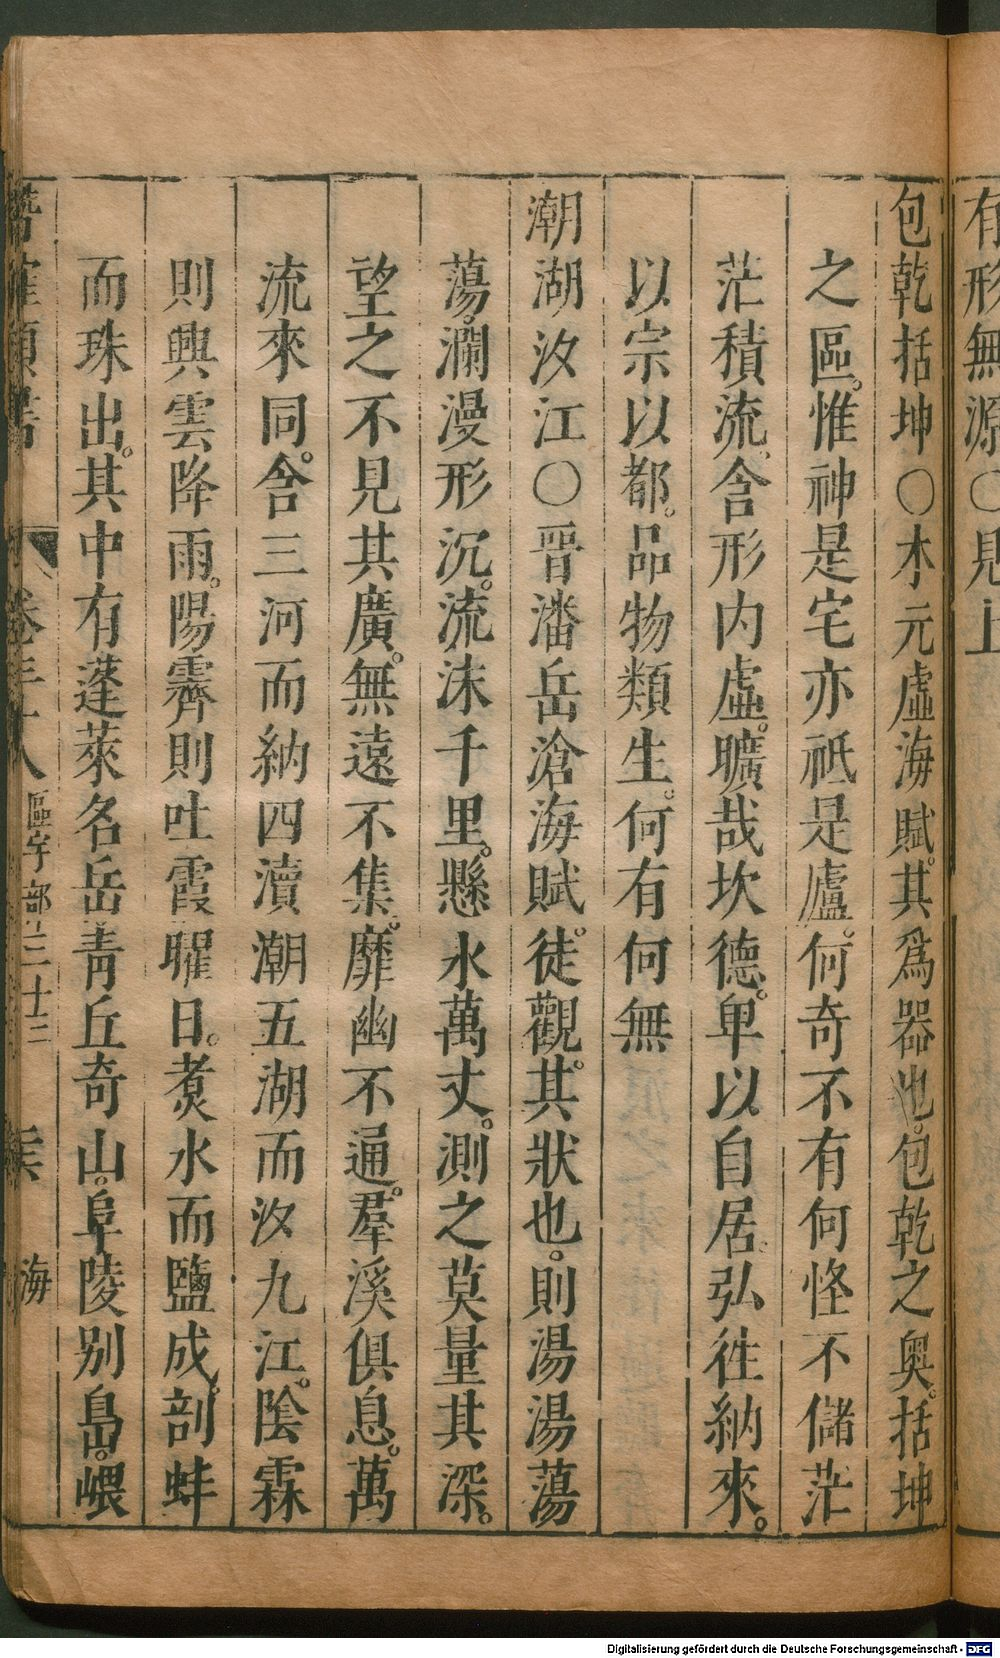 有形無源〇見上
包乾括坤〇木元虛海賦。其爲器也。包乾之奧。括坤
之區。惟神是宅亦祗是廬。何奇不有何怪不儲茫
茫積流。含形内虛。曠哉坎德。卑以自居。弘徃納來。
以宗以都。品物類生。何有何無
潮湖汝江〇晉潘岳滄海賦。徒觀其。狀也。則湯湯蕩
蕩。瀾漫形沉。流沫千里。懸水萬丈。測之莫量其深。
望。之不見其廣。無遠不集。靡幽不通。羣溪俱息。萬
流來同。含三河而納四瀆潮五湖而汝九江。陰霖
則興雲降雨。陽霽則吐霞曜日。煮水而鹽成。剖蚌
而珠出。其中有蓬萊名岳。青丘奇山。阜陵别島。㟪
卷三十八 區宇部三十三 海
Digitalisierung gefördert durch die Deutsche Forschungsgemeinschaft - DFG